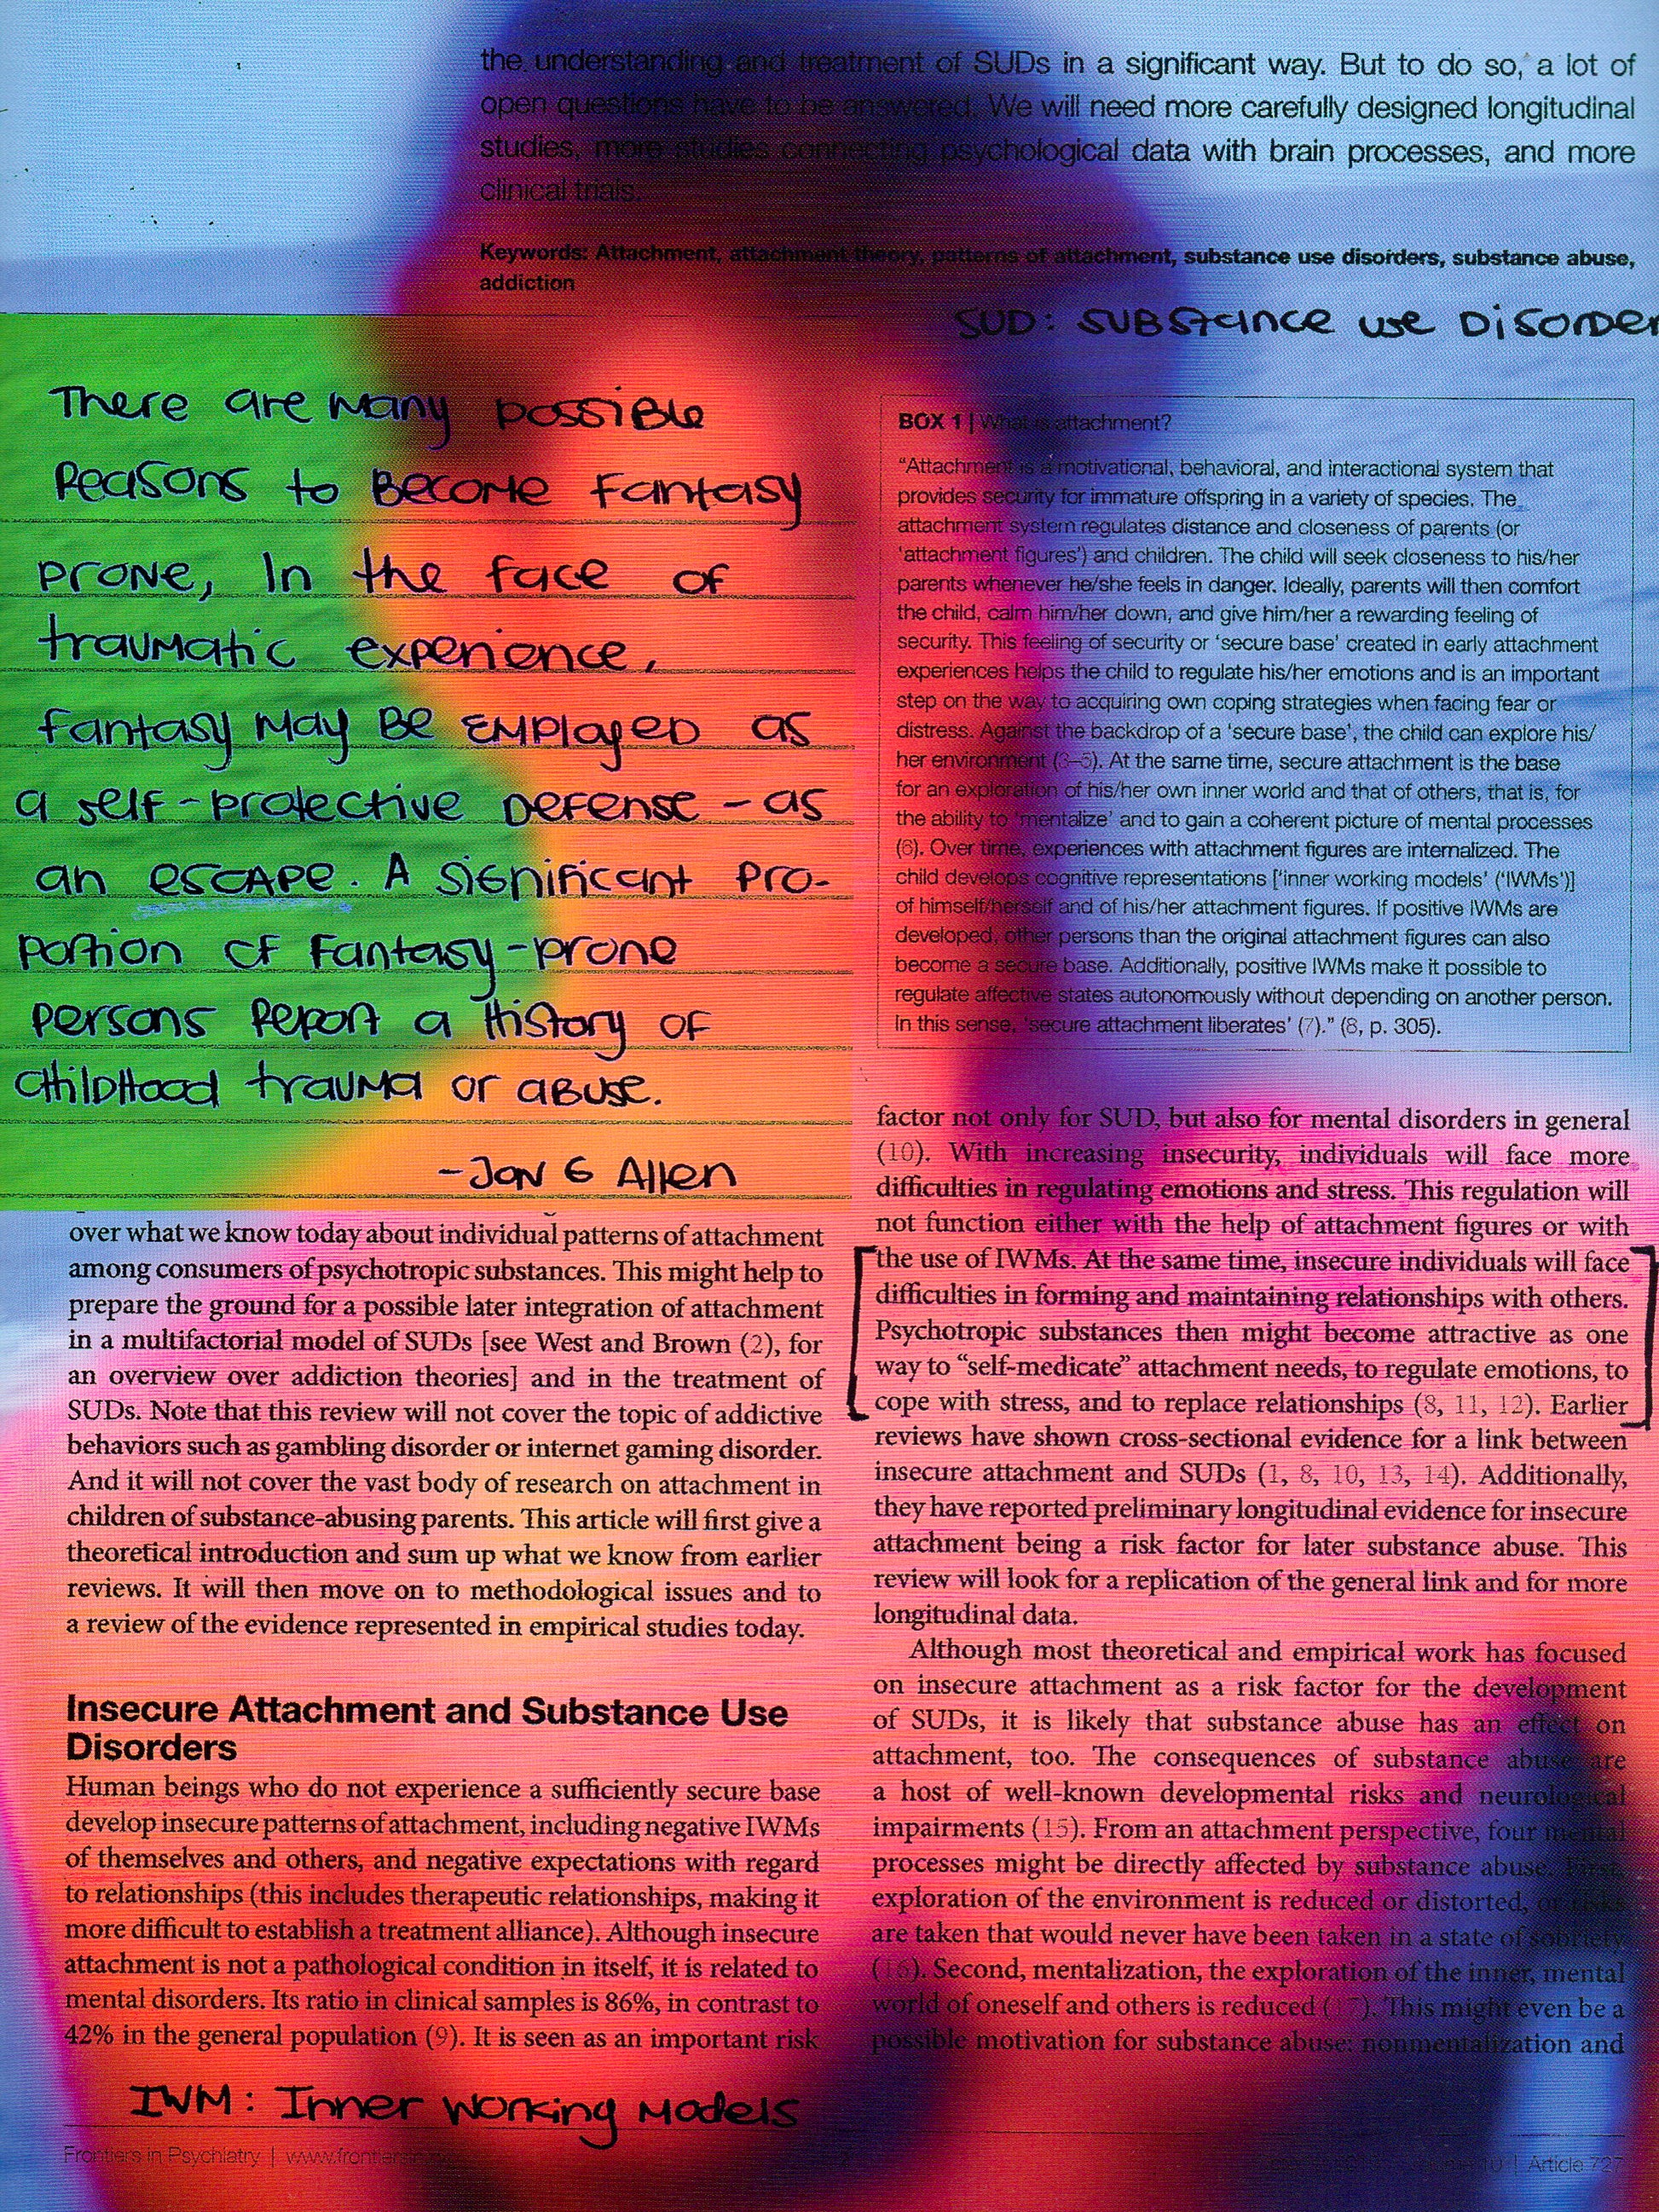 the understanding and treatment of SUDs in a significant way. But to do so, a lot of
open questions have to be answered. We will need more carefully designed longitudinal
studies, more studies connecting psychological data with brain processes, and more
clinical trials.
Keywords: Attachment, attachment theory, patterns of attachment, substance use disorders, substance abuse,
addiction
SUD: SUBStance use Disorder
There are many possible
Reasons to Become Fantasy
prone, In the face of
traumatic experience,
fantasy may Be Employed as
a self-protective Defense - as
an escape. A significant pro-
portion of Fantasy-prone
persons Report a History of
childhood trauma or abuse.
-Jon G Allen
over what we know today about individual patterns of attachment
among consumers of psychotropic substances. This might help to
prepare the ground for a possible later integration of attachment
in a multifactorial model of SUDs [see West and Brown (2), for
an overview over addiction theories] and in the treatment of
SUDs. Note that this review will not cover the topic of addictive
behaviors such as gambling disorder or internet gaming disorder.
And it will not cover the vast body of research on attachment in
children of substance-abusing parents. This article will first give a
theoretical introduction and sum up what we know from earlier
reviews. It will then move on to methodological issues and to
a review of the evidence represented in empirical studies today.
Insecure Attachment and Substance Use
Disorders
Human beings who do not experience a sufficiently secure base
develop insecure patterns of attachment, including negative IWMs
of themselves and others, and negative expectations with regard
to relationships (this includes therapeutic relationships, making it
more difficult to establish a treatment alliance). Although insecure
attachment is not a pathological condition in itself, it is related to
mental disorders. Its ratio in clinical samples is 86%, in contrast to
42% in the general population (9). It is seen as an important risk
IWM: Inner Working Models
BOX 1 | What is attachment?
"Attachment is a motivational, behavioral, and interactional system that
provides security for immature offspring in a variety of species. The
attachment system regulates distance and closeness of parents (or
'attachment figures') and children. The child will seek closeness to his/her
parents whenever he/she feels in danger. Ideally, parents will then comfort
the child, calm him/her down, and give him/her a rewarding feeling of
security. This feeling of security or 'secure base' created in early attachment
experiences helps the child to regulate his/her emotions and is an important
step on the way to acquiring own coping strategies when facing fear or
distress. Against the backdrop of a 'secure base', the child can explore his/
her environment (3–5). At the same time, secure attachment is the base
for an exploration of his/her own inner world and that of others, that is, for
the ability to 'mentalize' and to gain a coherent picture of mental processes
(6). Over time, experiences with attachment figures are internalized. The
child develops cognitive representations ['inner working models' ('IWMs')]
of himself/herself and of his/her attachment figures. If positive IWMs are
developed, other persons than the original attachment figures can also
become a secure base. Additionally, positive IWMs make it possible to
regulate affective states autonomously without depending on another person.
In this sense, 'secure attachment liberates' (7)." (8, p. 305).
factor not only for SUD, but also for mental disorders in general
(10). With increasing insecurity, individuals will face more
difficulties in regulating emotions and stress. This regulation will
not function either with the help of attachment figures or with
the use of IWMs. At the same time, insecure individuals will face
difficulties in forming and maintaining relationships with others.
Psychotropic substances then might become attractive as one
way to "self-medicate" attachment needs, to regulate emotions, to
cope with stress, and to replace relationships (8, 11, 12). Earlier
reviews have shown cross-sectional evidence for a link between
insecure attachment and SUDs (1, 8, 10, 13, 14). Additionally,
they have reported preliminary longitudinal evidence for insecure
attachment being a risk factor for later substance abuse. This
review will look for a replication of the general link and for more
longitudinal data.
Although most theoretical and empirical work has focused
on insecure attachment as a risk factor for the development
of SUDs, it is likely that substance abuse has an effect on
attachment, too. The consequences of substance abuse are
a host of well-known developmental risks and neurological
impairments (15). From an attachment perspective, four mental
processes might be directly affected by substance abuse. First,
exploration of the environment is reduced or distorted, or risks
are taken that would never have been taken in a state of sobriety
(16). Second, mentalization, the exploration of the inner, mental
world of oneself and others is reduced (17). This might even be a
possible motivation for substance abuse: nonmentalization and
Frontiers in Psychiatry |
| Article 727